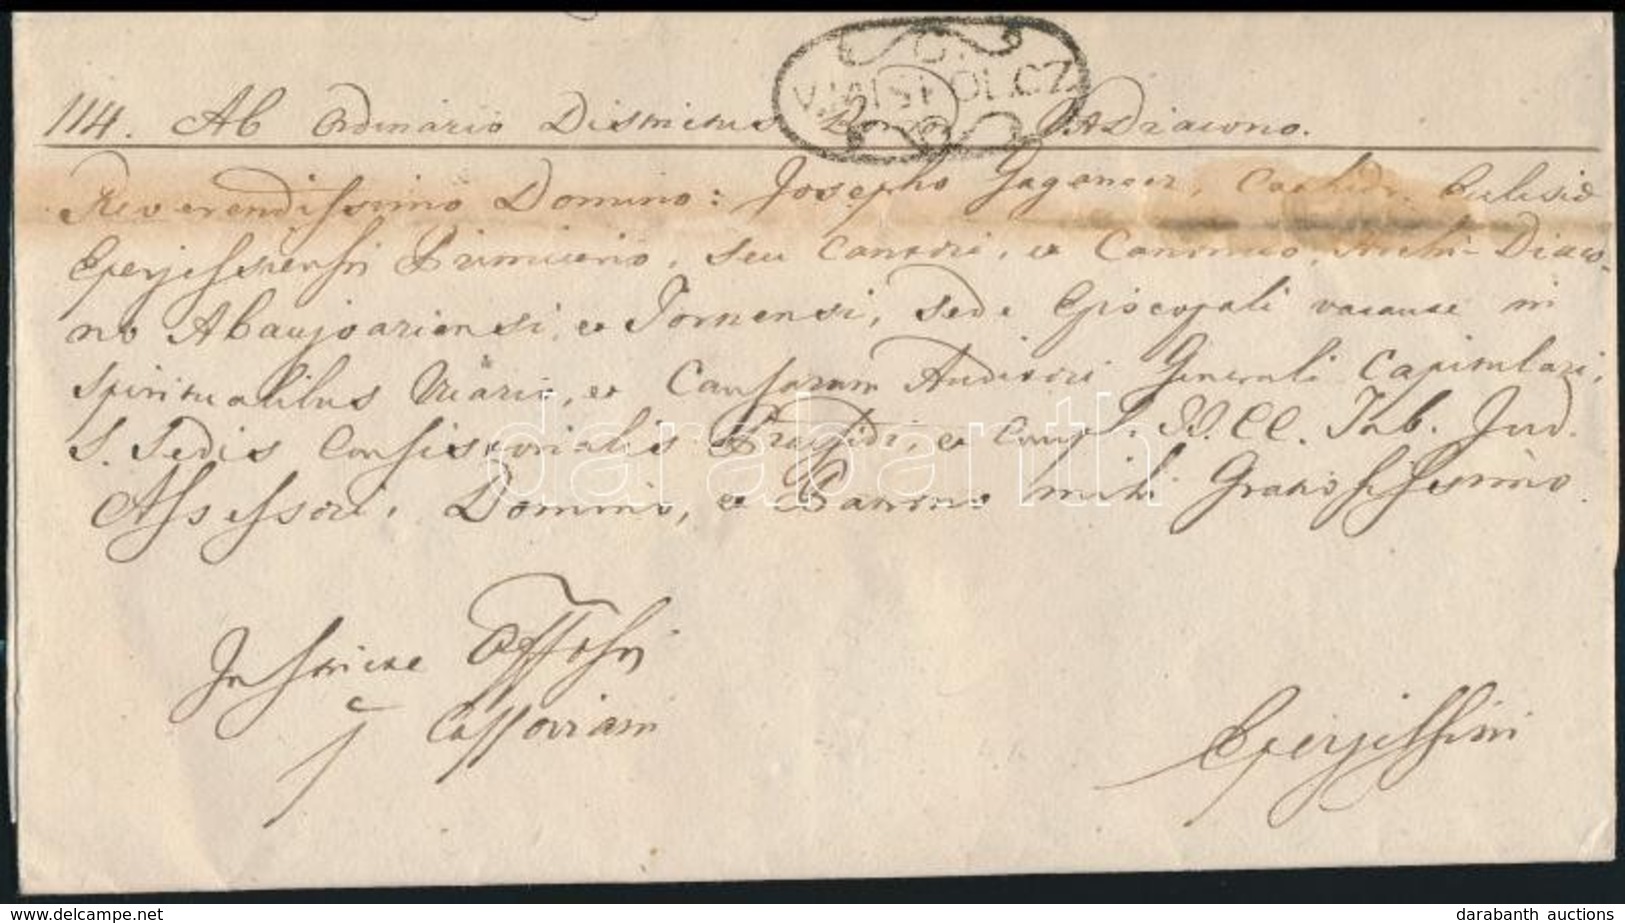 V. MISKOLCZ.
114. Ab Ordinario Districtus V. A Diacono.
Reverendissimo Domino: Josepho Gaganecz, Cathedr. Eclesiæ
Eperjessiensis Primicerio, seu Cantori, et Canonico, Archi-Diaco-
no Abaujvariensi, et Tornensi, Sede Episcopali vacante in
spiritualibus Vicario, et Causarum Auditori Generali Capitulari,
S. Sedis Consistorialis Præsidi, et Compl. II. CC. Tab. Jud.
Assessori, Domino, et Patrono mihi Gratiosissimo.
darabanth
p Cassoviam
Eperjessini
darabanth.com
darabanth auctions